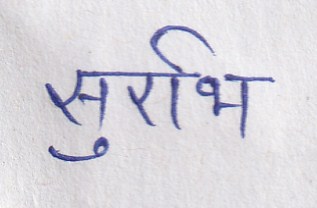 सुरभि